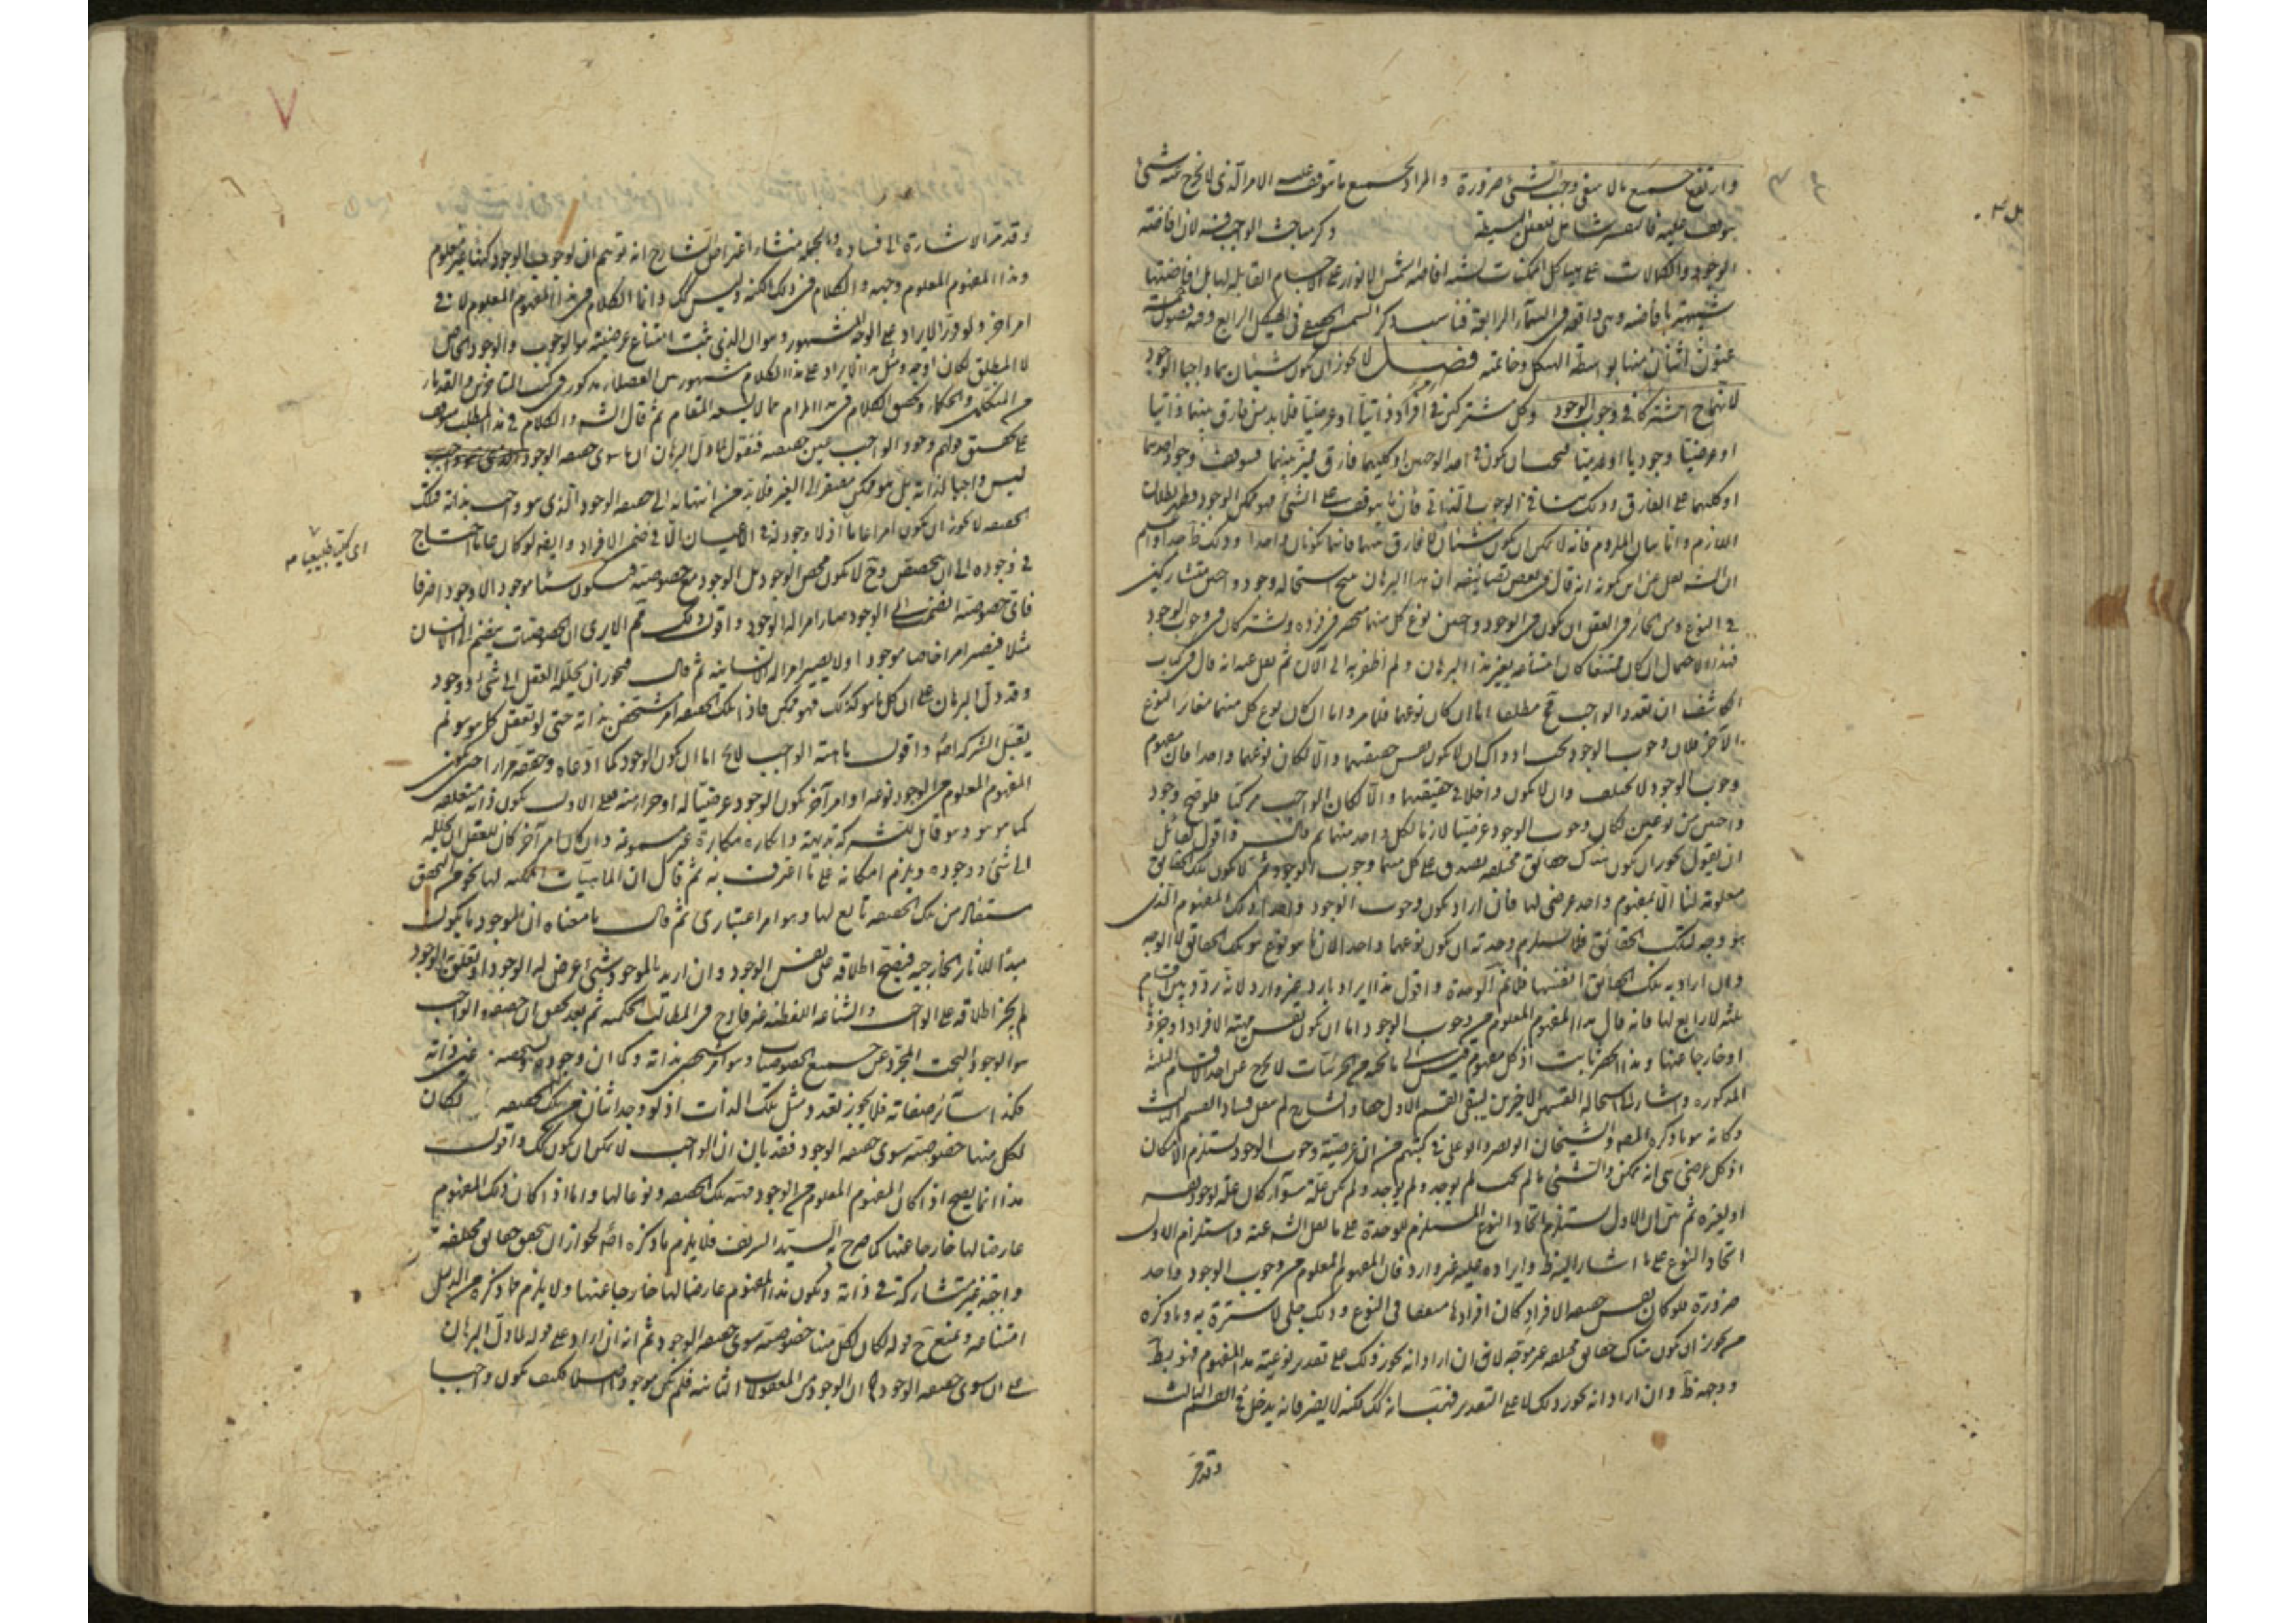 وارتفع جميع ما لا ينبغي وجب الشيء ضرورة والمراد بجميع ما يتوقف عليه الامر الذي لا يخرج عنه شيء
يتوقف عليه فالتفسير شامل للعلل البسيطة وذكر مباحث الواجب فيه لان افاضته
الوجود والكمالات على هياكل الممكنات يشبه افاضة الشمس الانوار على الاجسام القابلة لها بل افاضتها
شبيهة بافاضته وهي واقعة في السماء الرابعة فناسب ذكر الشمس في الهيكل الرابع وفيه فصول
اثنان منها بواسطة الهيكل وخاتمة فصل لا يجوز ان يكون شيئان هما واجبا الوجود
لانهما ح اشتركا في وجوب الوجود وكل مشتركين في امر ذاتيا او عرضيا فلا بد من فارق بينهما ذاتيا
او عرضيا وجوديا او عدميا فيجب ان يكون في احد الواجبين او كليهما فارق يميز بينهما فيتوقف وجود احدهما
او كليهما على الفارق وذلك ينافي الوجوب الذاتي فان ما يتوقف على الشيء فهو ممكن الوجود وظهر بطلان
اللازم واما بيان الملزوم فانه لا يمكن ان يكون شيئان لا فارق بينهما فانهما يكونان واحدا وذلك ظ جدا واعلم
ان الش نقل عن ابن كمونة انه قال في بعض تصانيفه ان هذا البرهان ينتج استحالة وجود واجبين متشاركين
في النوع ومن الجائز في العقل ان يكون في الوجود واجبين نوع كل منهما منحصر في فرده ويشتركان في وجوب الوجود
فهذا الاحتمال ان كان ممتنعا كان امتناعه بغير هذا البرهان ولم اظفر به الى الآن ثم نقل عنه انه قال في كتاب
الكاشف ان تعدد الواجب مح مطلقا اما ان كان نوعهما فلما مر واما ان كان نوع كل منهما مغاير النوع
الآخر فلان وجوب الوجود لا يكون نفس حقيقتهما والا لكان نوعهما واحدا فان مفهوم
وجوب الوجود لا يختلف وان لا يكون داخلا في حقيقتهما والا لكان الواجب مركبا فلو صح وجود
واجبين من نوعين لكان وجوب الوجود عرضيا لازما لكل واحد منهما ثم قال الش واقول لقائل
ان يقول يجوز ان يكون هناك حقائق مختلفة يصدق على كل منها وجوب الوجود ثم لا يكون تلك الحقائق
معلومة لنا الا بمفهوم واحد عرضي لها فان اراد بكون وجوب الوجود واحدا ذلك المفهوم الذي
هو وجه لتلك الحقائق فلا يستلزم وحدته ان يكون نوعهما واحدا لان ما هو نوع هو تلك الحقائق لا الوجه
وان اراد به تلك الحقائق انفسها فلا نم الوحدة واقول هذا الايراد بارد غير وارد لانه ردد بين اقسام
ثلثة لا رابع لها فانه قال هذا المفهوم المعلوم من وجوب الوجود اما ان يكون نفس مهية الافراد او جزؤها
او خارجا عنها وهذا الحصر ثابت اذ كل مفهوم قيس الى ما تحته من الجزئيات لا يخرج عن احد الاقسام الثلثة
المذكورة واشار الى استحالة القسمين الاخيرين ليبقى القسم الاول حقا والشارح لم ينقل فساد القسم الثالث
وكانه هو ما ذكره المصه والشيخان ابو نصر وابو علي في كتبهم من ان عرضية وجوب الوجود يستلزم الامكان
اذ كل عرضي شيء انه ممكن والشيء ما لم يجب لم يوجد وما لم يوجد لم يكن علة سواء كان علة لوجود نفسه
او لغيره ثم بين ان الاول يستلزم اتحاد النوع المستلزم للوحدة على ما نقل الش عنه واستلزام الاول
اتحاد النوع على ما اشار اليه ظ وايراده عليه غير وارد فان المفهوم المعلوم من وجوب الوجود واحد
ضرورة فلو كان نفس حقيقة الافراد كان افراده متفقا في النوع وذلك جلي لا سترة به وما ذكره
من جواز ان يكون هناك حقائق مختلفة غير موجه لانه ان اراد انه يجوز ذلك على تقدير نوعية هذا المفهوم فهو بط
ووجهه ظ وان اراد انه يجوز ذلك لا على التقدير فنمت انه كك لكنه لا يضر فانه يدخل في القسم الثالث
وقد مر
وقد مر الاشارة الى فساده وبالجملة منشاء اعتراض الشارح انه توهم ان لوجوب الوجود كنها غير معلوم
وهذا المفهوم المعلوم وجهه والكلام في ذلك الكنه وليس كك وانما الكلام في هذا المفهوم المعلوم لا في
امر آخر ولو قرر الايراد على الوجه المشهور وهو ان الذي ثبت امتناع عرضيته هو الوجوب والوجود الخاص
لا المطلق لكان اوجه ومثل هذا الايراد على هذا الكلام مشهور بين الفضلاء مذكور في كتب المتاخرين والقدماء
من المتكلمين والحكماء وتحقيق الكلام في هذا المرام مما لا يسعه المقام ثم قال الش والكلام في هذا المطلب موقوف
على تحقيق قولهم وجود الواجب عين حقيقته فنقول لما دل البرهان ان ما سوى حقيقة الوجود
ليس واجبا لذاته بل هو ممكن مفتقر الى الغير فلا بد من انتهائه الى حقيقة الوجود الذي هو واجب بذاته فتلك
الحقيقة لا يجوز ان يكون امرا عاما اذ لا وجود له في الاعيان الا في ضمن الافراد وايضا لو كان عاما احتاج
في وجوده الى ان يتخصص وح لا يكون محض الوجود بل الوجود مع خصوصيته فيكون شيئا موجودا لا وجودا صرفا
فان خصوصية انضمت الى الوجود صار امرا له الوجود واقول ذلك مم الا يرى ان الخصوصيات ينضم الى الانسان
مثلا فيصير امرا خاصا موجودا ولا يصير امرا له الانسانية ثم قال فيجوز ان يحلله العقل الى شيء ووجود
وقد دل البرهان على ان كل ما هو كذلك فهو ممكن فاذا تلك الحقيقة امر متشخص بذاته حتى لو تعقل كما هو هو لم
يقبل الشركة اصلا واقول ماهية الواجب لا يخ اما ان يكون الوجود كما ادعاه وحققه مرارا حتى يكون
المفهوم المعلوم من الوجود نوعه او امر آخر يكون الوجود عرضيا له او جزء منه فعلى الاول يكون ذاته متعلقة
كما هو هو وهو قابل للشركة بديهة وانكاره مكابرة غير مسموعة وان كان امر آخر كان للعقل ان يحلله
الى شيء ووجوده ويلزم امكانه على ما اعترفت به ثم قال ان الماهيات الممكنة لها نحو من التحقق
مستفاد من تلك الحقيقة تابع لها وهو امر اعتباري ثم قال ما معناه ان الموجود ما يكون
مبدأ للآثار الخارجية فيصح اطلاقه على نفس الوجود وان اريد بالموجود شيء عرض له الوجود او تعلق الوجود
لم يجز اطلاقه على الواجب والشناعة اللفظية غير قادح في المطالب الحكمية ثم بعد تحقق ان حقيقة الواجب
هو الوجود البحت المجرد عن جميع الخصوصيات وهو امر متشخص بذاته وكما ان وجوده وتشخصه عين ذاته
فكذا سائر صفاته فلا يجوز تعدد مثل تلك الذات اذ لو وجد اثنان من تلك الحقيقة لكان
لكل منهما خصوصية سوى حقيقة الوجود فقد بان ان الواجب لا يمكن ان يكون كك واقول
هذا انما يصح اذا كان المفهوم المعلوم من الوجود مهية تلك الحقيقة ونوعا لها واما اذا كان ذلك المفهوم
عارضا لها خارجا عنها كما صرح به السيد الشريف فلا يلزم ما ذكره اصلا لجواز ان يتحقق حقائق مختلفة
واجبة غير متشاركة في ذاته ويكون هذا المفهوم عارضا لها خارجا عنها ولا يلزم مما ذكره من الدليل
امتناعه ويمنع ح قوله لكان لكل منهما خصوصية سوى حقيقة الوجود ثم انه ان اراد على قوله لما دل البرهان
على ان ما سوى حقيقة الوجود ان الوجود من المعقولات الثانية فلم يكن موجودا اصلا فكيف يكون واجبا
اى كلية طبيعيا